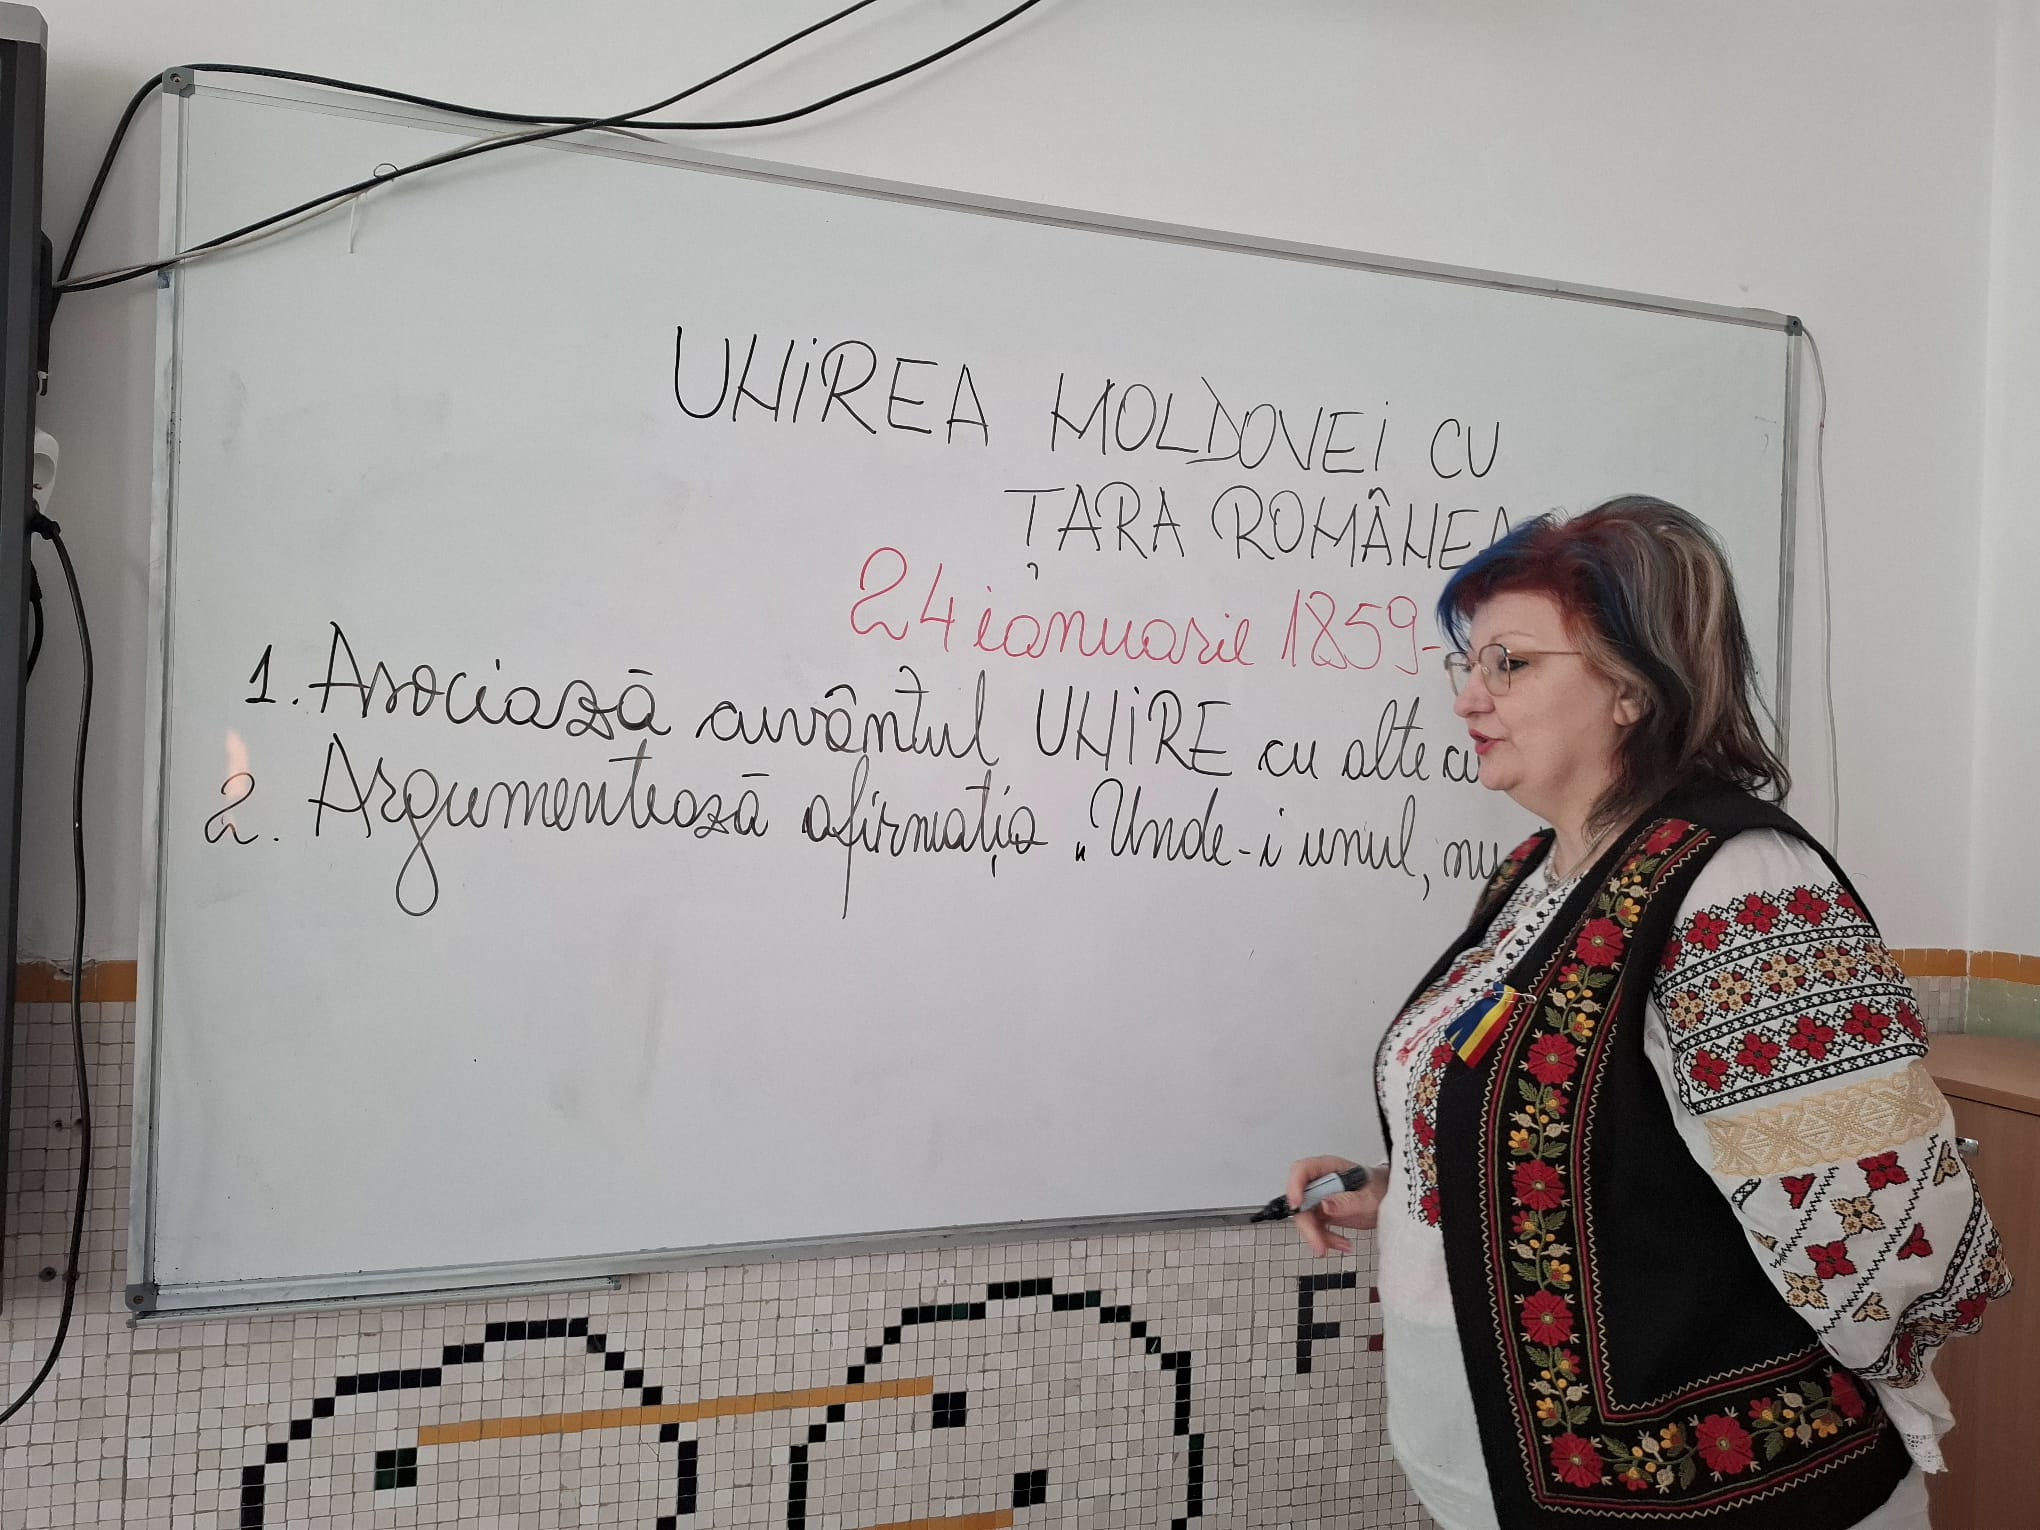 UNIREA MOLDOVEI CU
ȚARA ROMÂNEA
24 ianuarie 1859-
1. Asociază cuvântul UNIRE cu alte cu
2. Argumentează afirmația „Unde-i unul, nu
F